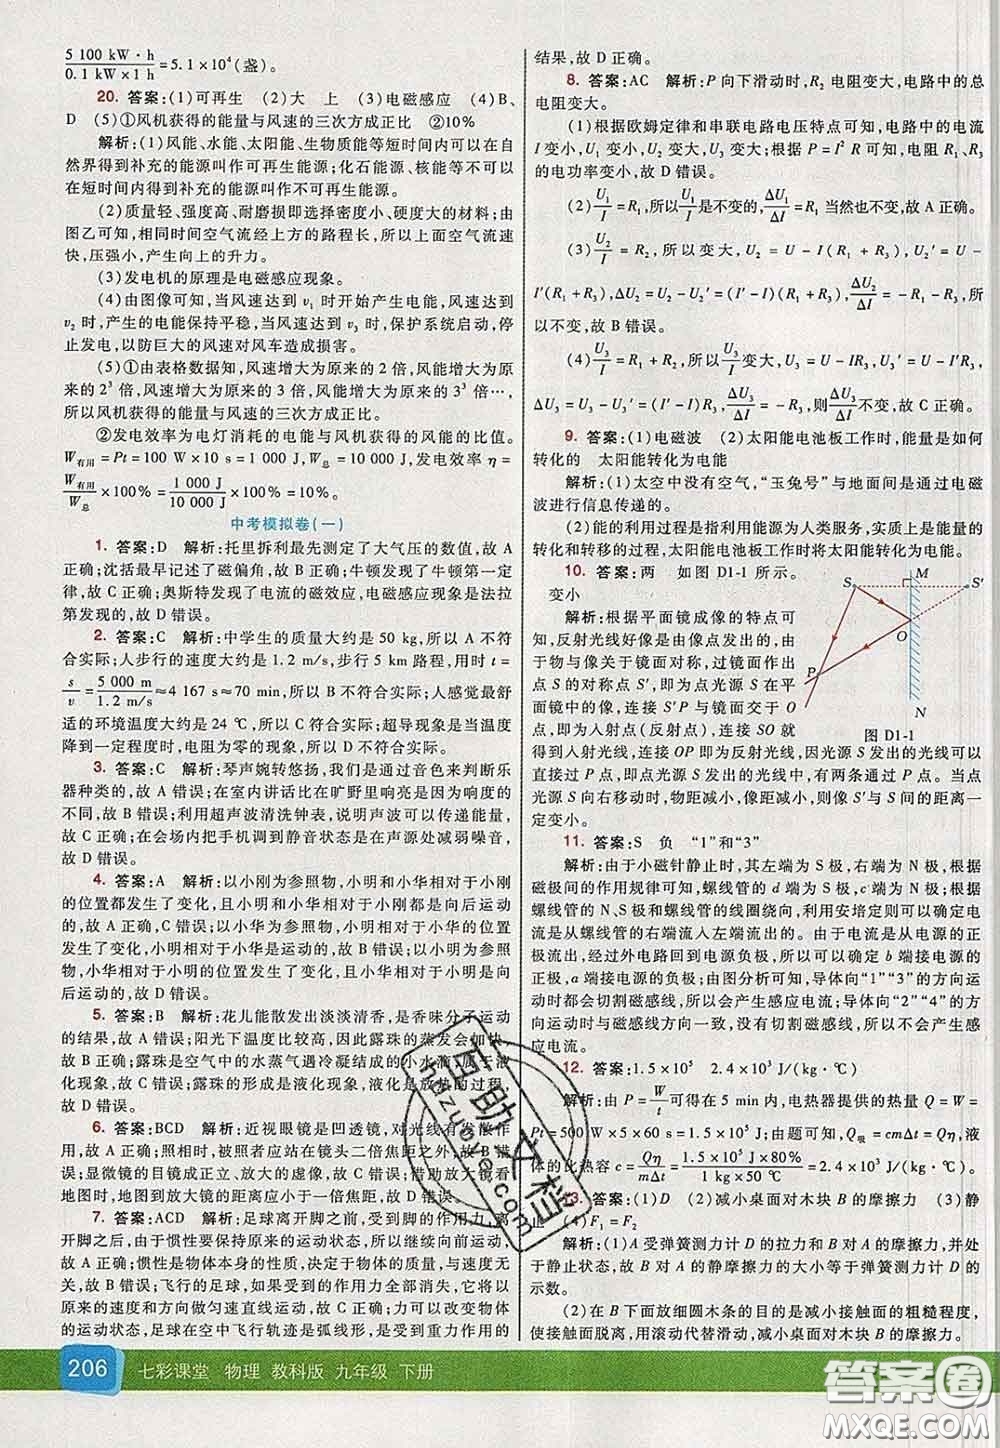 5 100 kW·h/0.1 kW×1 h=5.1×10⁴(盏)。
20. 答案:(1)可再生 (2)大 上 (3)电磁感应 (4)B、
D (5)①风机获得的能量与风速的三次方成正比 ②10%
解析:(1)风能、水能、太阳能、生物质能等短时间内可以在自
然界得到补充的能源叫作可再生能源;化石能源、核能等不可以
在短时间内得到补充的能源叫作不可再生能源。
(2)质量轻、强度高、耐磨损即选择密度小、硬度大的材料;由
图乙可知,相同时间空气流经上方的路程长,所以上面空气流速
快,压强小,产生向上的升力。
(3)发电机的原理是电磁感应现象。
(4)由图像可知,当风速达到 v₁ 时开始产生电能,风速达到
v₂ 时,产生的电能保持平稳,当风速达到 v₃ 时,保护系统启动,停
止发电,以防巨大的风速对风车造成损害。
(5)①由表格数据知,风速增大为原来的 2 倍,风能增大为原
来的 2³ 倍,风速增大为原来的 3 倍,风能增大为原来的 3³ 倍…,
所以风机获得的能量与风速的三次方成正比。
②发电效率为电灯消耗的电能与风机获得的风能的比值。
W有用=Pt=100 W×10 s=1 000 J,W总=10 000 J,发电效率 η=
W有用/W总×100%=1 000 J/10 000 J×100%=10%。
中考模拟卷(一)
1. 答案:D 解析:托里拆利最先测定了大气压的数值,故 A
正确;沈括最早记述了磁偏角,故 B 正确;牛顿发现了牛顿第一定
律,故 C 正确;奥斯特发现了电流的磁效应,电磁感应现象是法拉
第发现的,故 D 错误。
2. 答案:C 解析:中学生的质量大约是 50 kg,所以 A 不符
合实际;人步行的速度大约是 1.2 m/s,步行 5 km 路程,用时 t=
s/v=5 000 m/1.2 m/s≈4 167 s≈70 min,所以 B 不符合实际;人感觉最舒
适的环境温度大约是 24 ℃,所以 C 符合实际;超导现象是当温度
降到一定程度时,电阻为零的现象,所以 D 不符合实际。
3. 答案:C 解析:琴声婉转悠扬,我们是通过音色来判断乐
器种类的,故 A 错误;在室内讲话比在旷野里响亮是因为响度的
不同,故 B 错误;利用超声波清洗钟表,说明声可以传递能量,
故 C 正确;在会场内把手机调到静音状态是在声源处减弱噪声,
故 D 错误。
4. 答案:A 解析:以小刚为参照物,小明和小华相对于小刚
的位置都发生了变化,且小明和小华相对于小刚都是向后运动
的,故 A 正确、B 错误;以小华为参照物,小明相对于小华的位置
发生了变化,小明相对于小华是运动的,故 C 错误;以小明为参照
物,小华相对于小明的位置发生了变化,且小华相对于小明是向
后运动的,故 D 错误。
5. 答案:B 解析:花儿能散发出淡淡清香,是香味分子运动
的结果,故 A 错误;阳光下温度比较高,因此露珠的蒸发会加快,
故 B 正确;露珠是空气中的水蒸气遇冷凝结成的小水滴,属于液
化现象,故 C 错误;露珠的形成是液化现象,液化是放热的过程,
故 D 错误。
6. 答案:BCD 解析:近视眼镜是凹透镜,对光线有发散作
用,故 A 正确;照相时,被照者应站在镜头二倍焦距之外,故 B 错
误;显微镜的目镜成正立、放大的虚像,故 C 错误;借助放大镜看
地图时,地图到放大镜的距离应小于一倍焦距,故 D 错误。
7. 答案:ACD 解析:足球离开脚之前,受到脚的作用力,离
开脚之后,由于惯性要保持原来的运动状态,所以继续向前运动,
故 A 正确;惯性是物体本身的性质,决定于物体的质量,与速度无
关,故 B 错误;飞行的足球,如果所受的力全部消失,它将以
原来的速度和方向做匀速直线运动,故 C 正确;力可以改变物体
的运动状态,足球在空中飞行轨迹是弧线形,是受到重力作用的
结果,故 D 正确。
8. 答案:AC 解析:P 向下滑动时,R₂ 电阻变大,电路中的总
电阻变大。
(1)根据欧姆定律和串联电路电压特点可知,电路中的电流
I 变小,U₁ 变小,U₂ 变大,U₃ 变小;根据 P=I²R 可知,R₁、R₃
的电功率变小,故 D 错误。
(2)U₁/I=R₁,所以U₁/I是不变的,ΔU₁/ΔI=R₁ 当然也不变,故 A 正确。
(3)U₂/I=R₂,所以变大,U₂=U-I(R₁+R₃),U₂′=U-
I′(R₁+R₃),ΔU₂=U₂-U₂′=(I′-I)(R₁+R₃),ΔU₂/ΔI=-R₁-R₃,所
以不变,故 B 错误。
(4)U₃/I=R₁+R₂,所以U₃/I变大,U₃=U-IR₃,U₃′=U-I′R₃,
ΔU₃=U₃-U₃′=(I′-I)R₃,ΔU₃/ΔI=-R₃,则ΔU₃/ΔI不变,故 C 正确。
9. 答案:(1)电磁波 (2)太阳能电池板工作时,能量是如何
转化的 太阳能转化为电能
解析:(1)太空中没有空气,“玉兔号”与地面间是通过电磁
波进行信息传递的。
(2)能的利用过程是指利用能源为人类服务,实质上是能量的
转化和转移的过程,太阳能电池板工作时将太阳能转化为电能。
10. 答案:两 如图 D1-1 所示。
变小
解析:根据平面镜成像的特点可
知,反射光线好像是由像点发出的,
由于物与像关于镜面对称,过镜面作出
点 S 的对称点 S′,即为点光源 S 在平
面镜中的像,连接 S′P 与镜面交于 O
点,即为入射点(反射点),连接 SO 就
得到入射光线,连接 OP 即为反射光线,因光源 S 发出的光线可以
直接过 P 点,即点光源 S 发出的光线中,有两条通过 P 点。当点
光源 S 向右移动时,物距减小,像距减小,则像 S′与 S 间的距离一
定变小。
S
M
S′
O
P
N
图 D1-1
11. 答案:S 负 “1”和“3”
解析:由于小磁针静止时,其左端为 S 极,右端为 N 极,根据
磁极间的作用规律可知,螺线管的 d 端为 S 极,c 端为 N 极;根据
螺线管的 N、S 极和螺线管的线圈绕向,利用安培定则可确定电
流是从螺线管的右端流入左端流出的。由于电流是从电源的正
极流出,经过外电路回到电源负极,所以可以确定 b 端接电源的
正极,a 端接电源的负极;由图分析可知,导体向“1”“3”的方向运
动时都会切割磁感线,所以会产生感应电流;导体向“2”“4”的方
向运动时与磁感线方向一致,没有切割磁感线,所以不会产生感
应电流。
12. 答案:1.5×10⁵ 2.4×10³ J/(kg·℃)
解析:由 P=W/t可得在 5 min 内,电热器提供的热量 Q=W=
Pt=500 W×5×60 s=1.5×10⁵ J;由题可知,Q吸=cmΔt=Qη,液
体的比热容 c=Qη/mΔt=1.5×10⁵ J×80%/1 kg×50 ℃=2.4×10³ J/(kg·℃)。
13. 答案:(1)D (2)减小桌面对木块 B 的摩擦力 (3)静
止 (4)F₁=F₂
解析:(1)A 受弹簧测力计 D 的拉力和 B 对 A 的摩擦力,并处
于静止状态,故木块 B 对 A 的静摩擦力的大小等于弹簧测力计 D 的
示数。
(2)在 B 下面放细圆木条的目的是减小接触面的粗糙程度,
使木块与桌面间用滚动代替滑动,减小桌面对木块 B 的摩擦力。
百助文档
baizuoye.com
206 七彩课堂 物理 教科版 九年级 下册
答案圈
MXQE.COM